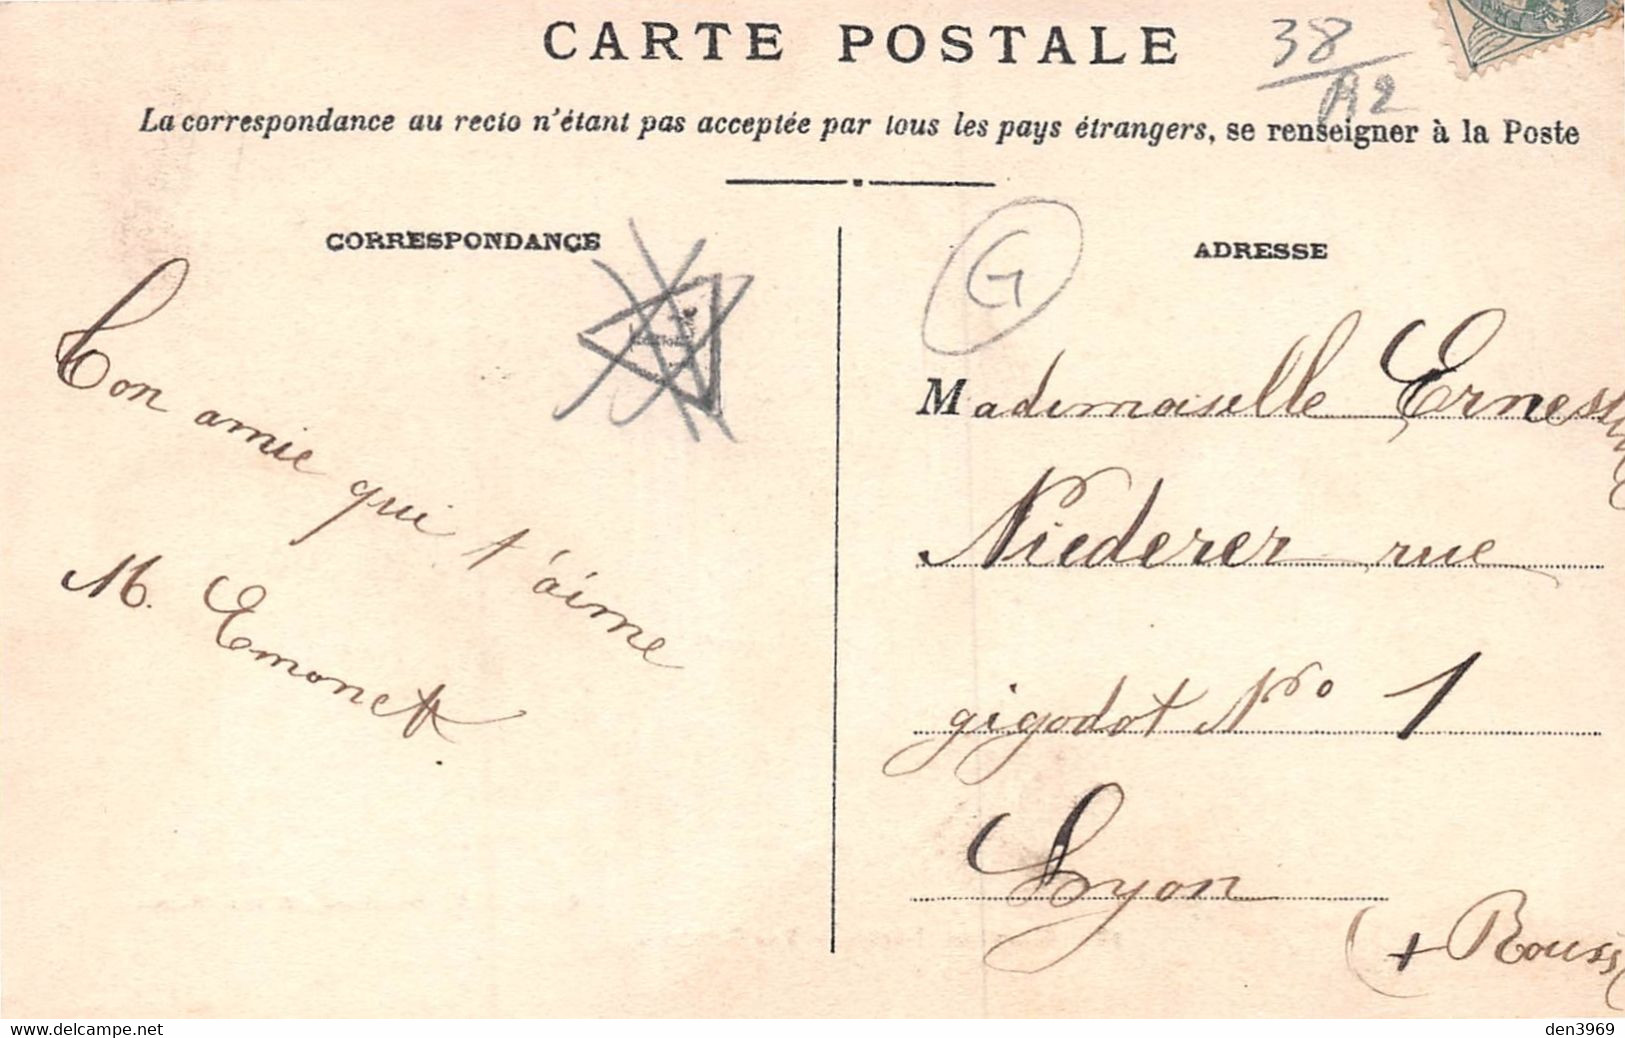 CARTE POSTALE
38
A2
La correspondance au recto n'étant pas acceptée par tous les pays étrangers, se renseigner à la Poste
CORRESPONDANCE
Ton amie qui t'aime
M. Emonet
G
ADRESSE
Mademoiselle Ernestin
Niederer rue
gigodot No 1
Lyon
(+ Rouss
delcampe.net
den3969